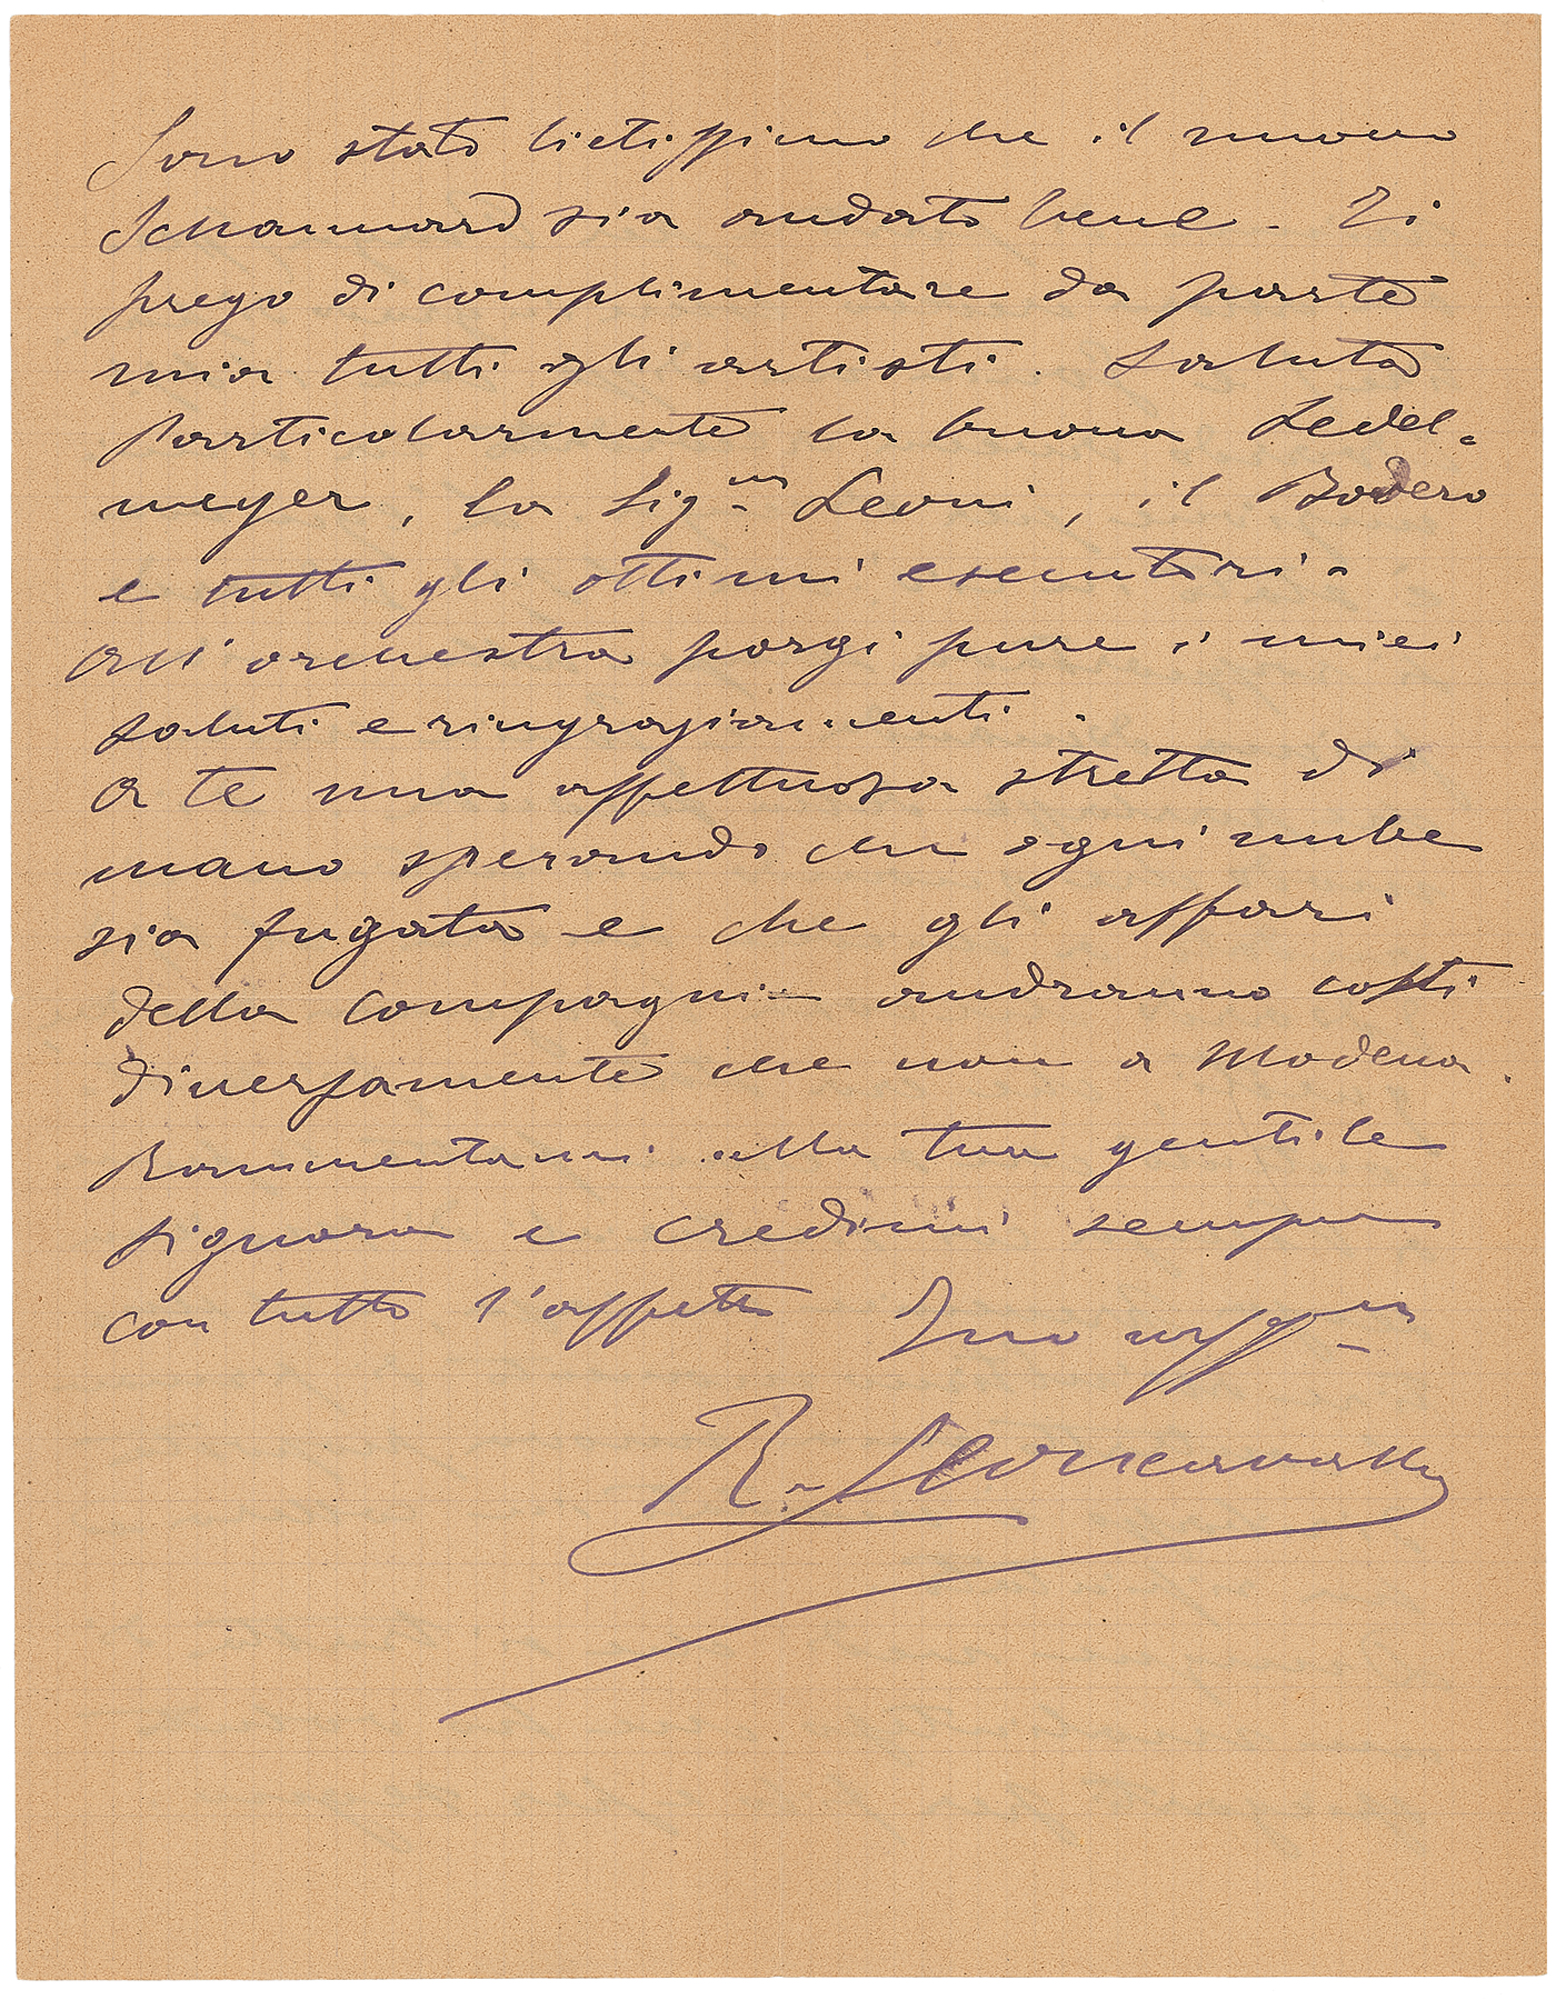 Sono stato lietissimo che il nuovo
Schaunard sia andato bene. Ti
prego di complimentare da parte
mia tutti gli artisti. Saluta
particolarmente la buona Sedel-
meyer, la Sig.na Leoni, il Bodero
e tutti gli ottimi esecutori.
All'orchestra porgi pure i miei
saluti e ringraziamenti.
A te una affettuosa stretta di
mano sperando che ogni nube
sia fugata e che gli affari
della Compagnia andranno costì
diversamente che non a Modena.
Rammentami alla tua gentile
signora e credimi sempre
con tutto l'affetto Tuo aff.mo
R. Leoncavallo